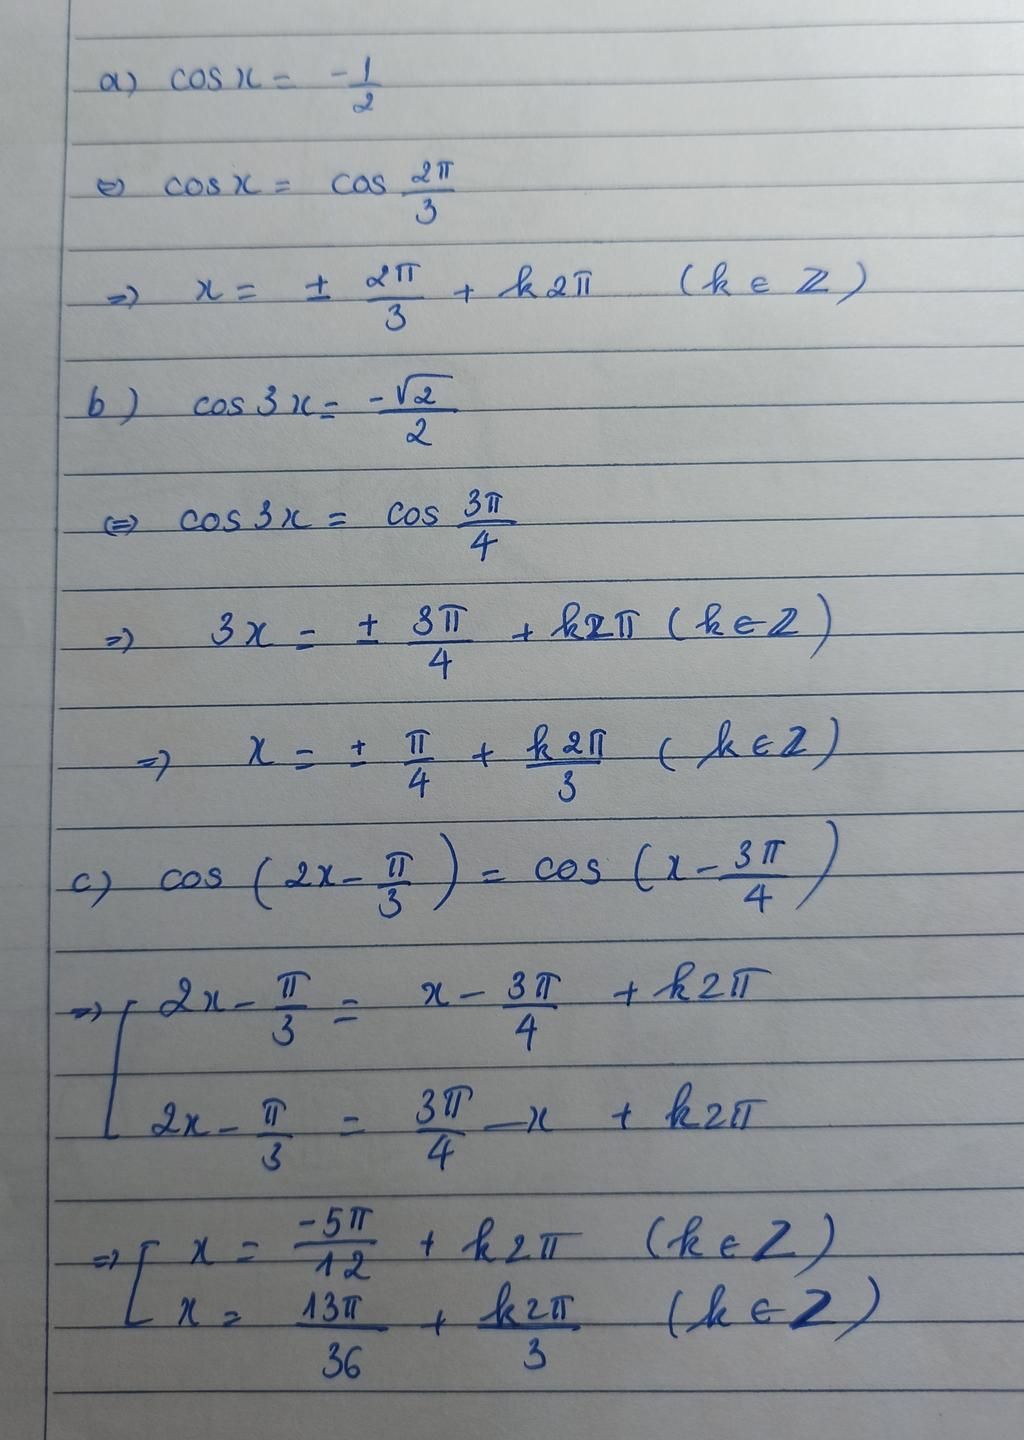 a) cos x = -1/2
⇔ cos x = cos 2π/3
⇒ x = ± 2π/3 + k2π (k ∈ Z)
b) cos 3x = -√2/2
⇔ cos 3x = cos 3π/4
⇒ 3x = ± 3π/4 + k2π (k ∈ Z)
⇒ x = ± π/4 + k2π/3 (k ∈ Z)
c) cos (2x - π/3) = cos (x - 3π/4)
⇒ [ 2x - π/3 = x - 3π/4 + k2π
2x - π/3 = 3π/4 - x + k2π
⇒ [ x = -5π/12 + k2π (k ∈ Z)
x = 13π/36 + k2π/3 (k ∈ Z)